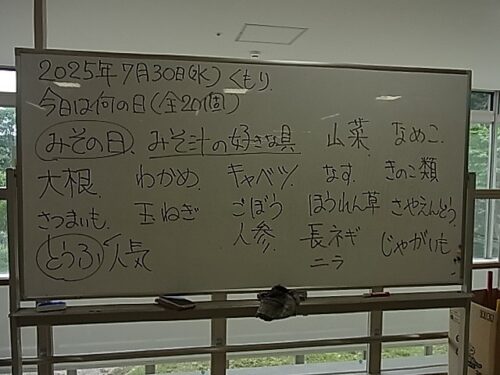 2025年7月30日(水)くもり.
今日は何の日(全20個)
みその日. みそ汁の好きな具 山菜 なめこ.
大根. わかめ. キャベツ. なす. きのこ類
さつまいも. 玉ねぎ ごぼう ほうれん草 さやえんどう.
とうふ 人気 人参. 長ネギ じゃがいも
ニラ